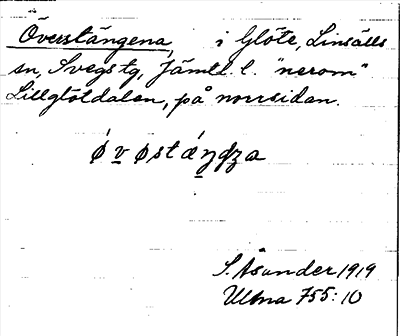 Överstängena, i Glöte, Linsälls
sn, Svegs tg, Jämtl. l. "nerom"
Lillglötdalen, på norrsidan.
ǿ v ø s t ǽ ŋ d z a
S. Åsander 1919
Ulma 755:10